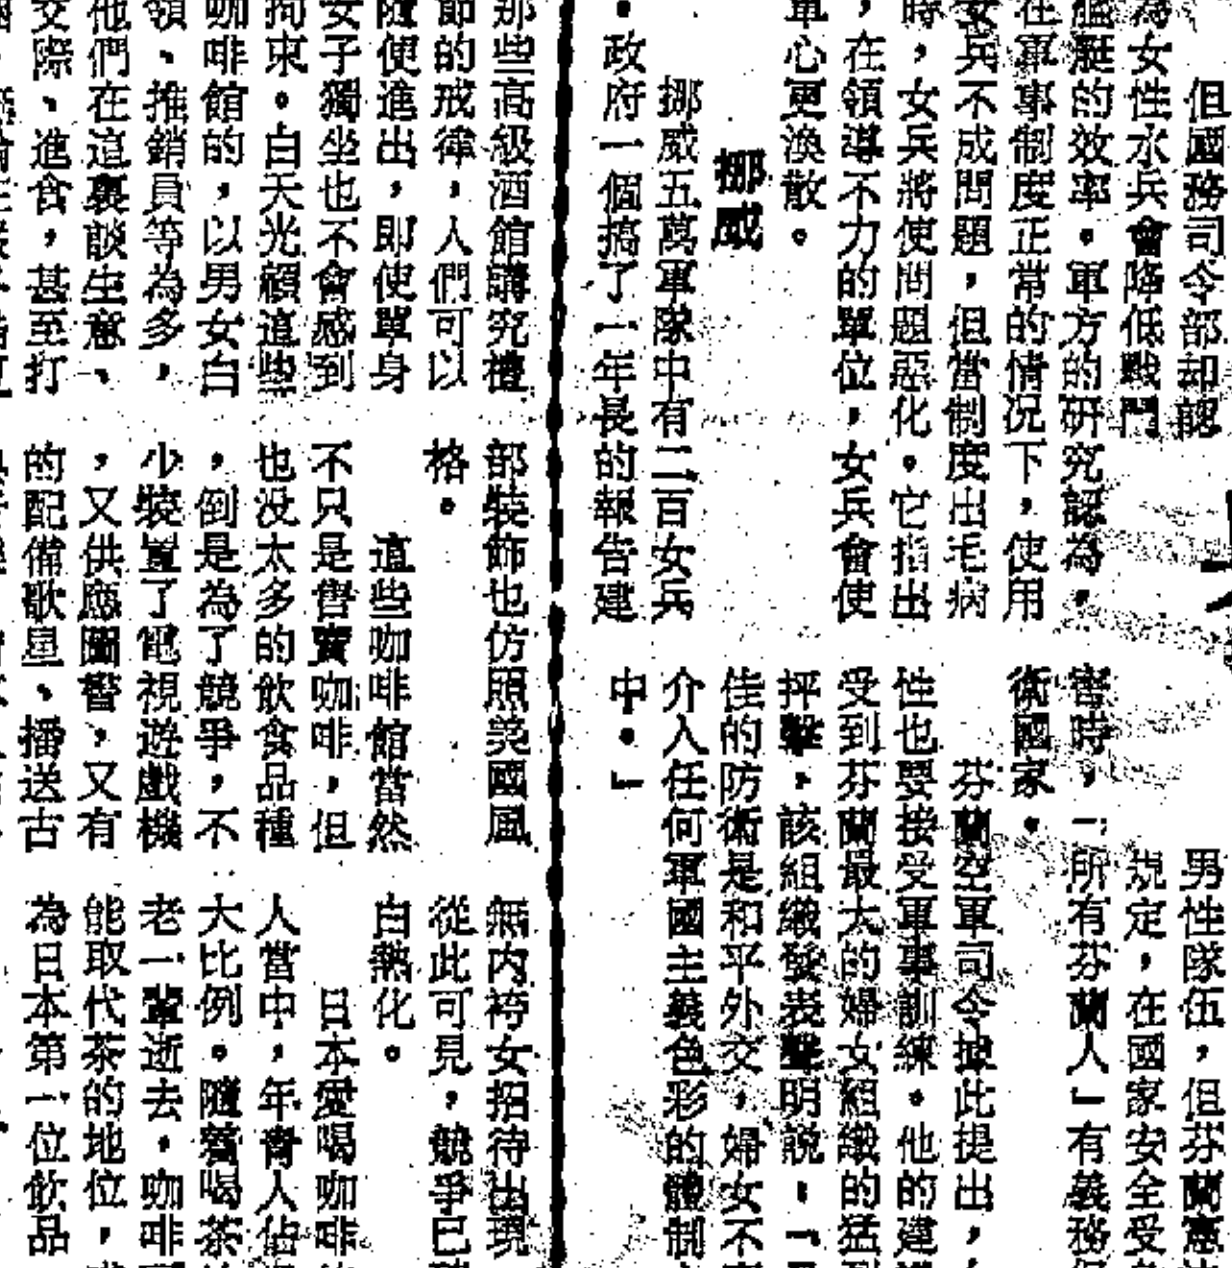 但國務司令部却認
為女性水兵會降低戰鬥
艦艇的效率。軍方的研究認為,
在軍事制度正常的情况下,使用
女兵不成問題,但當制度出毛病
時,女兵將使問題惡化。它指出
,在領導不力的單位,女兵會使
軍心更渙散。
挪威
挪威五萬軍隊中有二百女兵
。政府一個搞了一年長的報告建
男性隊伍,但芬蘭憲
規定,在國家安全受
害時,「所有芬蘭人」有義務
衛國家。
芬蘭空軍司令據此提出,
性也要接受軍事訓練。他的建
受到芬蘭最大的婦女組織的猛烈
抨擊,該組織發表聲明說:「
佳的防衛是和平外交,婦女不
介入任何軍國主義色彩的體制
中。」
那些高級酒館講究禮
節的戒律,人們可以
隨便進出,即使單身
女子獨坐也不會感到
拘束。白天光顧這些
咖啡館的,以男女白
領、推銷員等為多,
他們在這裏談生意、
交際、進食,甚至打
部裝飾也仿照美國風
格。
這些咖啡館當然
不只是售賣咖啡,但
也没太多的飲食品種
,倒是為了競爭,不
少裝置了電視遊戲機
,又供應圖書,又有
的配備歌星、播送古
無内袴女招待出現
從此可見,競爭已
白熱化。
日本愛喝咖啡
人當中,年青人佔
大比例。隨着喝茶
老一輩逝去,咖啡
能取代茶的地位,
為日本第一位飲品